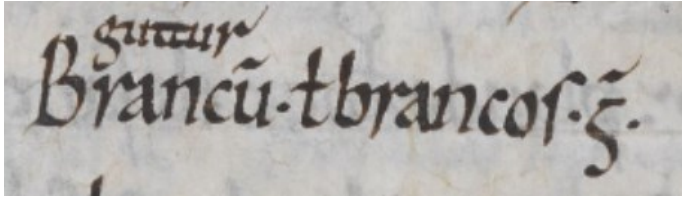 guttur
Brancū· ł brancos· ḡ·